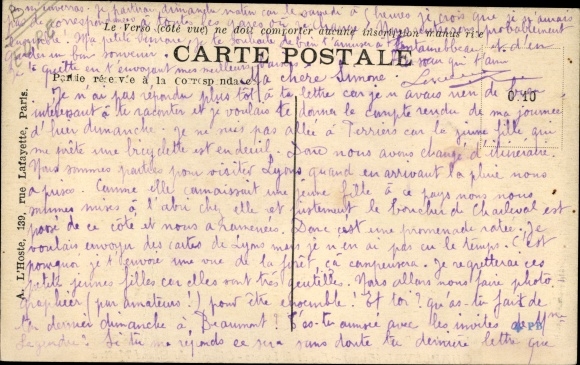 tu m'enverras. Je partirai dimanche matin car le samedi à heures je crois que je n'aurais
pas de correspondance à toutes les gares
Le Verso (côté vue) ne doit comporter aucune inscription manuscrite
probablement
encore. Ma petite Simone je te souhaite de bien t'amuser à Fontainebleau et d'en
garder un bon souvenir.
CARTE POSTALE
Je te quitte en t'envoyant mes meilleurs
Partie réservée à la Correspondance
Ma chère Simone
0.10
Je n'ai pas répondu plus tôt à ta lettre car je n'avais rien de
intéressant à te raconter et je voulais te donner le compte rendu de ma journée
d'hier dimanche. Je ne suis pas allée à Terriers car la jeune fille qui
me prête une bicyclette est en deuil. Donc nous avons changé d'itinéraire.
Nous sommes parties pour visiter Lyons quand en arrivant la pluie nous
a prises. Comme elle connaissait une jeune fille à ce pays nous nous
sommes mises à l'abri chez elle et justement le boucher de Charleval est
passé de ce côté et nous a ramenées. Donc c'est une promenade ratée. Je
voulais envoyer des cartes de Lyons mais je n'en ai pas eu le temps. C'est
pourquoi je t'envoie une vue de la forêt, çà compensera. Je regretterai ces
petites jeunes filles car elles sont très gentilles. Nous allons nous faire photo-
graphier (par amateurs!) pour être ensemble! Et toi? qu'as-tu fait de
ton dernier dimanche à Beaumont! T'es-tu amusée avec les invités de Mme
Si tu me réponds ce sera sans doute ta dernière lettre que
A. L'Hoste, 139, rue Lafayette, Paris.